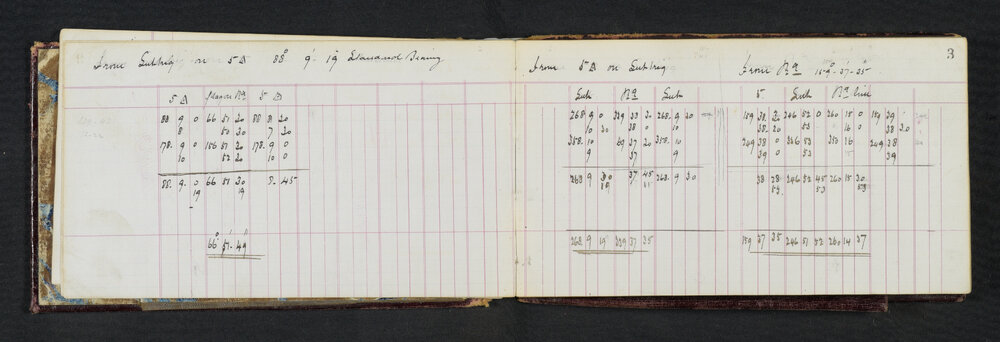 From Subtrig on 5 Δ 88° 9' 19 Standard Bearing
5 Δ Magor Rª 5 Δ
88 9 0 66 51 20 88 8 20
8 50 20 7 20
178 9 0 156 51 20 178 9 0
10 52 20 10 0
88 9 0 66 51 30 8 45
19 19
66° 51' 49
3
From 5 Δ on Subtrig
Sub Rª Sub
268 9 0 329 33 20 268 9 20
10 20 38 0 10
358 10 59 37 20 358 10
9 37 9
268 9 30 37 45 268 9 30
19 11
268 9 19 329 37 35
From Rª 159° 37' 35"
5 Sub Rª line
159 38 20 246 52 0 260 15 0 159 39
38 20 53 16 0 38 30
249 38 0 336 53 350 16 249 38
39 0 53 39
38 28 246 52 45 260 15 30
53 53 53
159 37 35 246 51 52 260 14 37